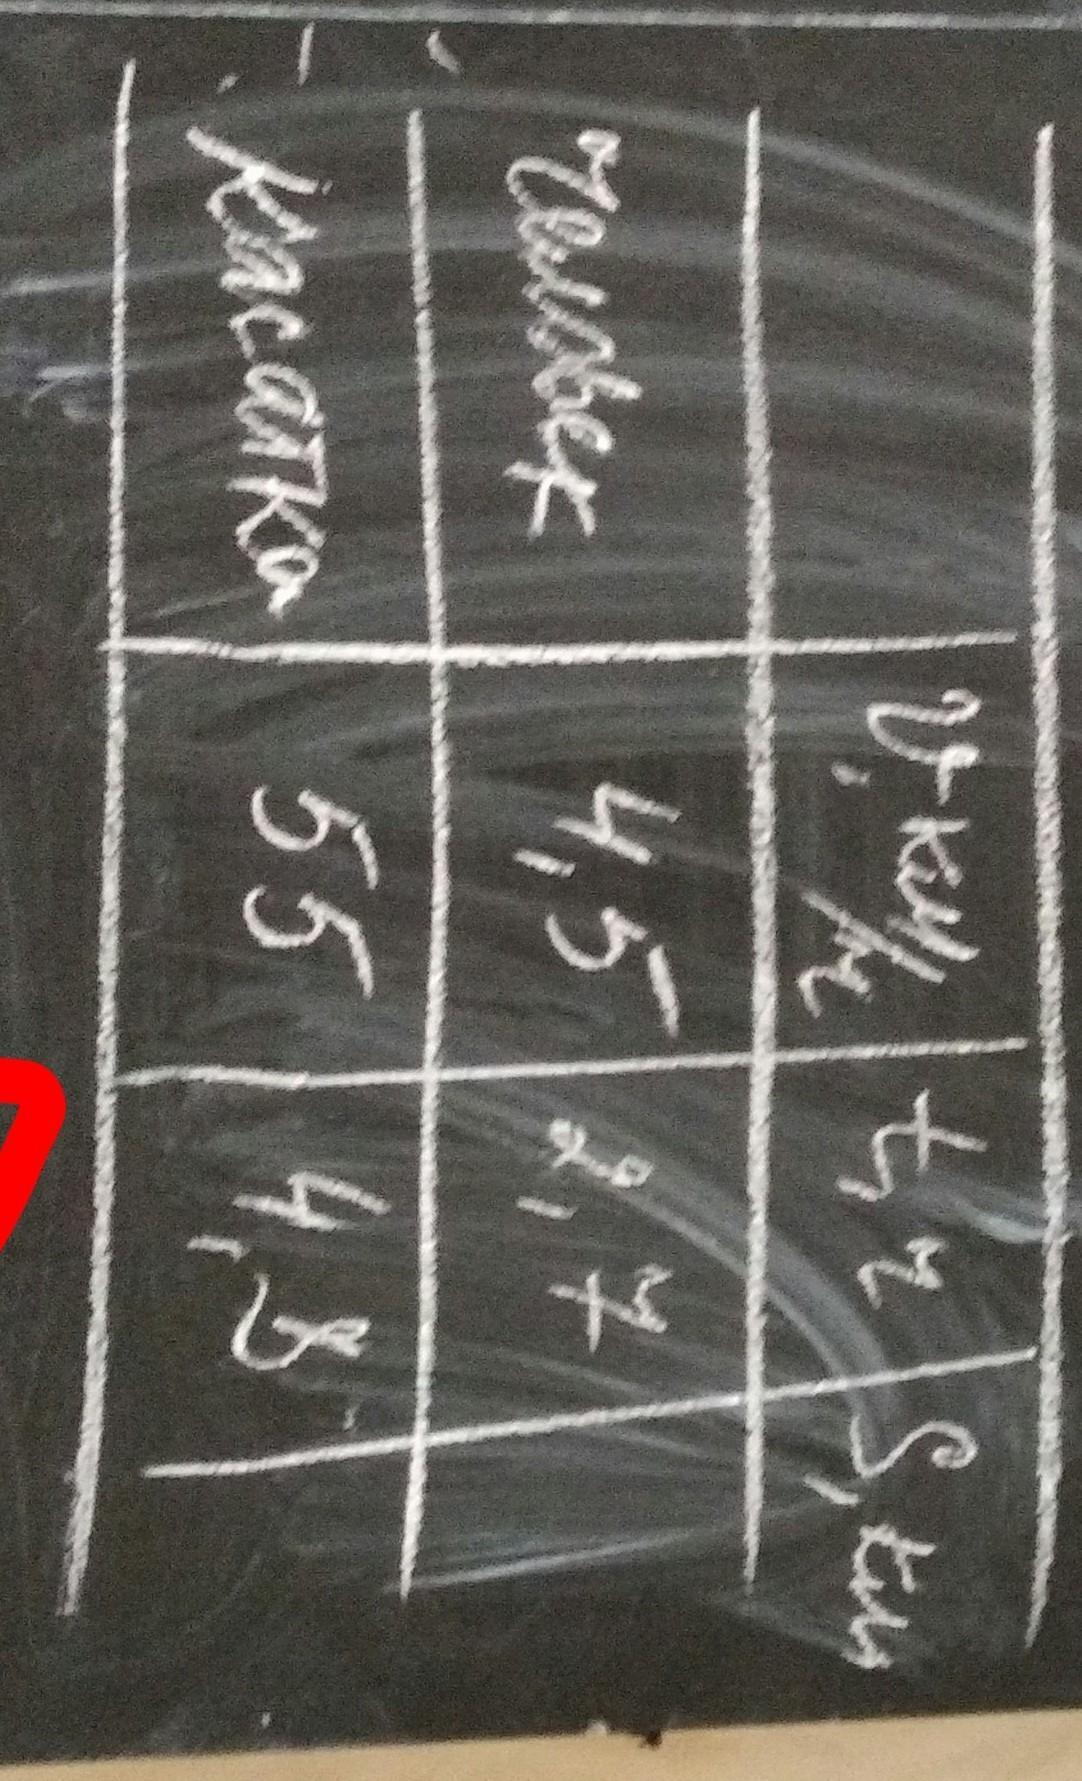 V, км/ч t, ч S, км
Человек 4,5 2,7
Касатка 55 4,8